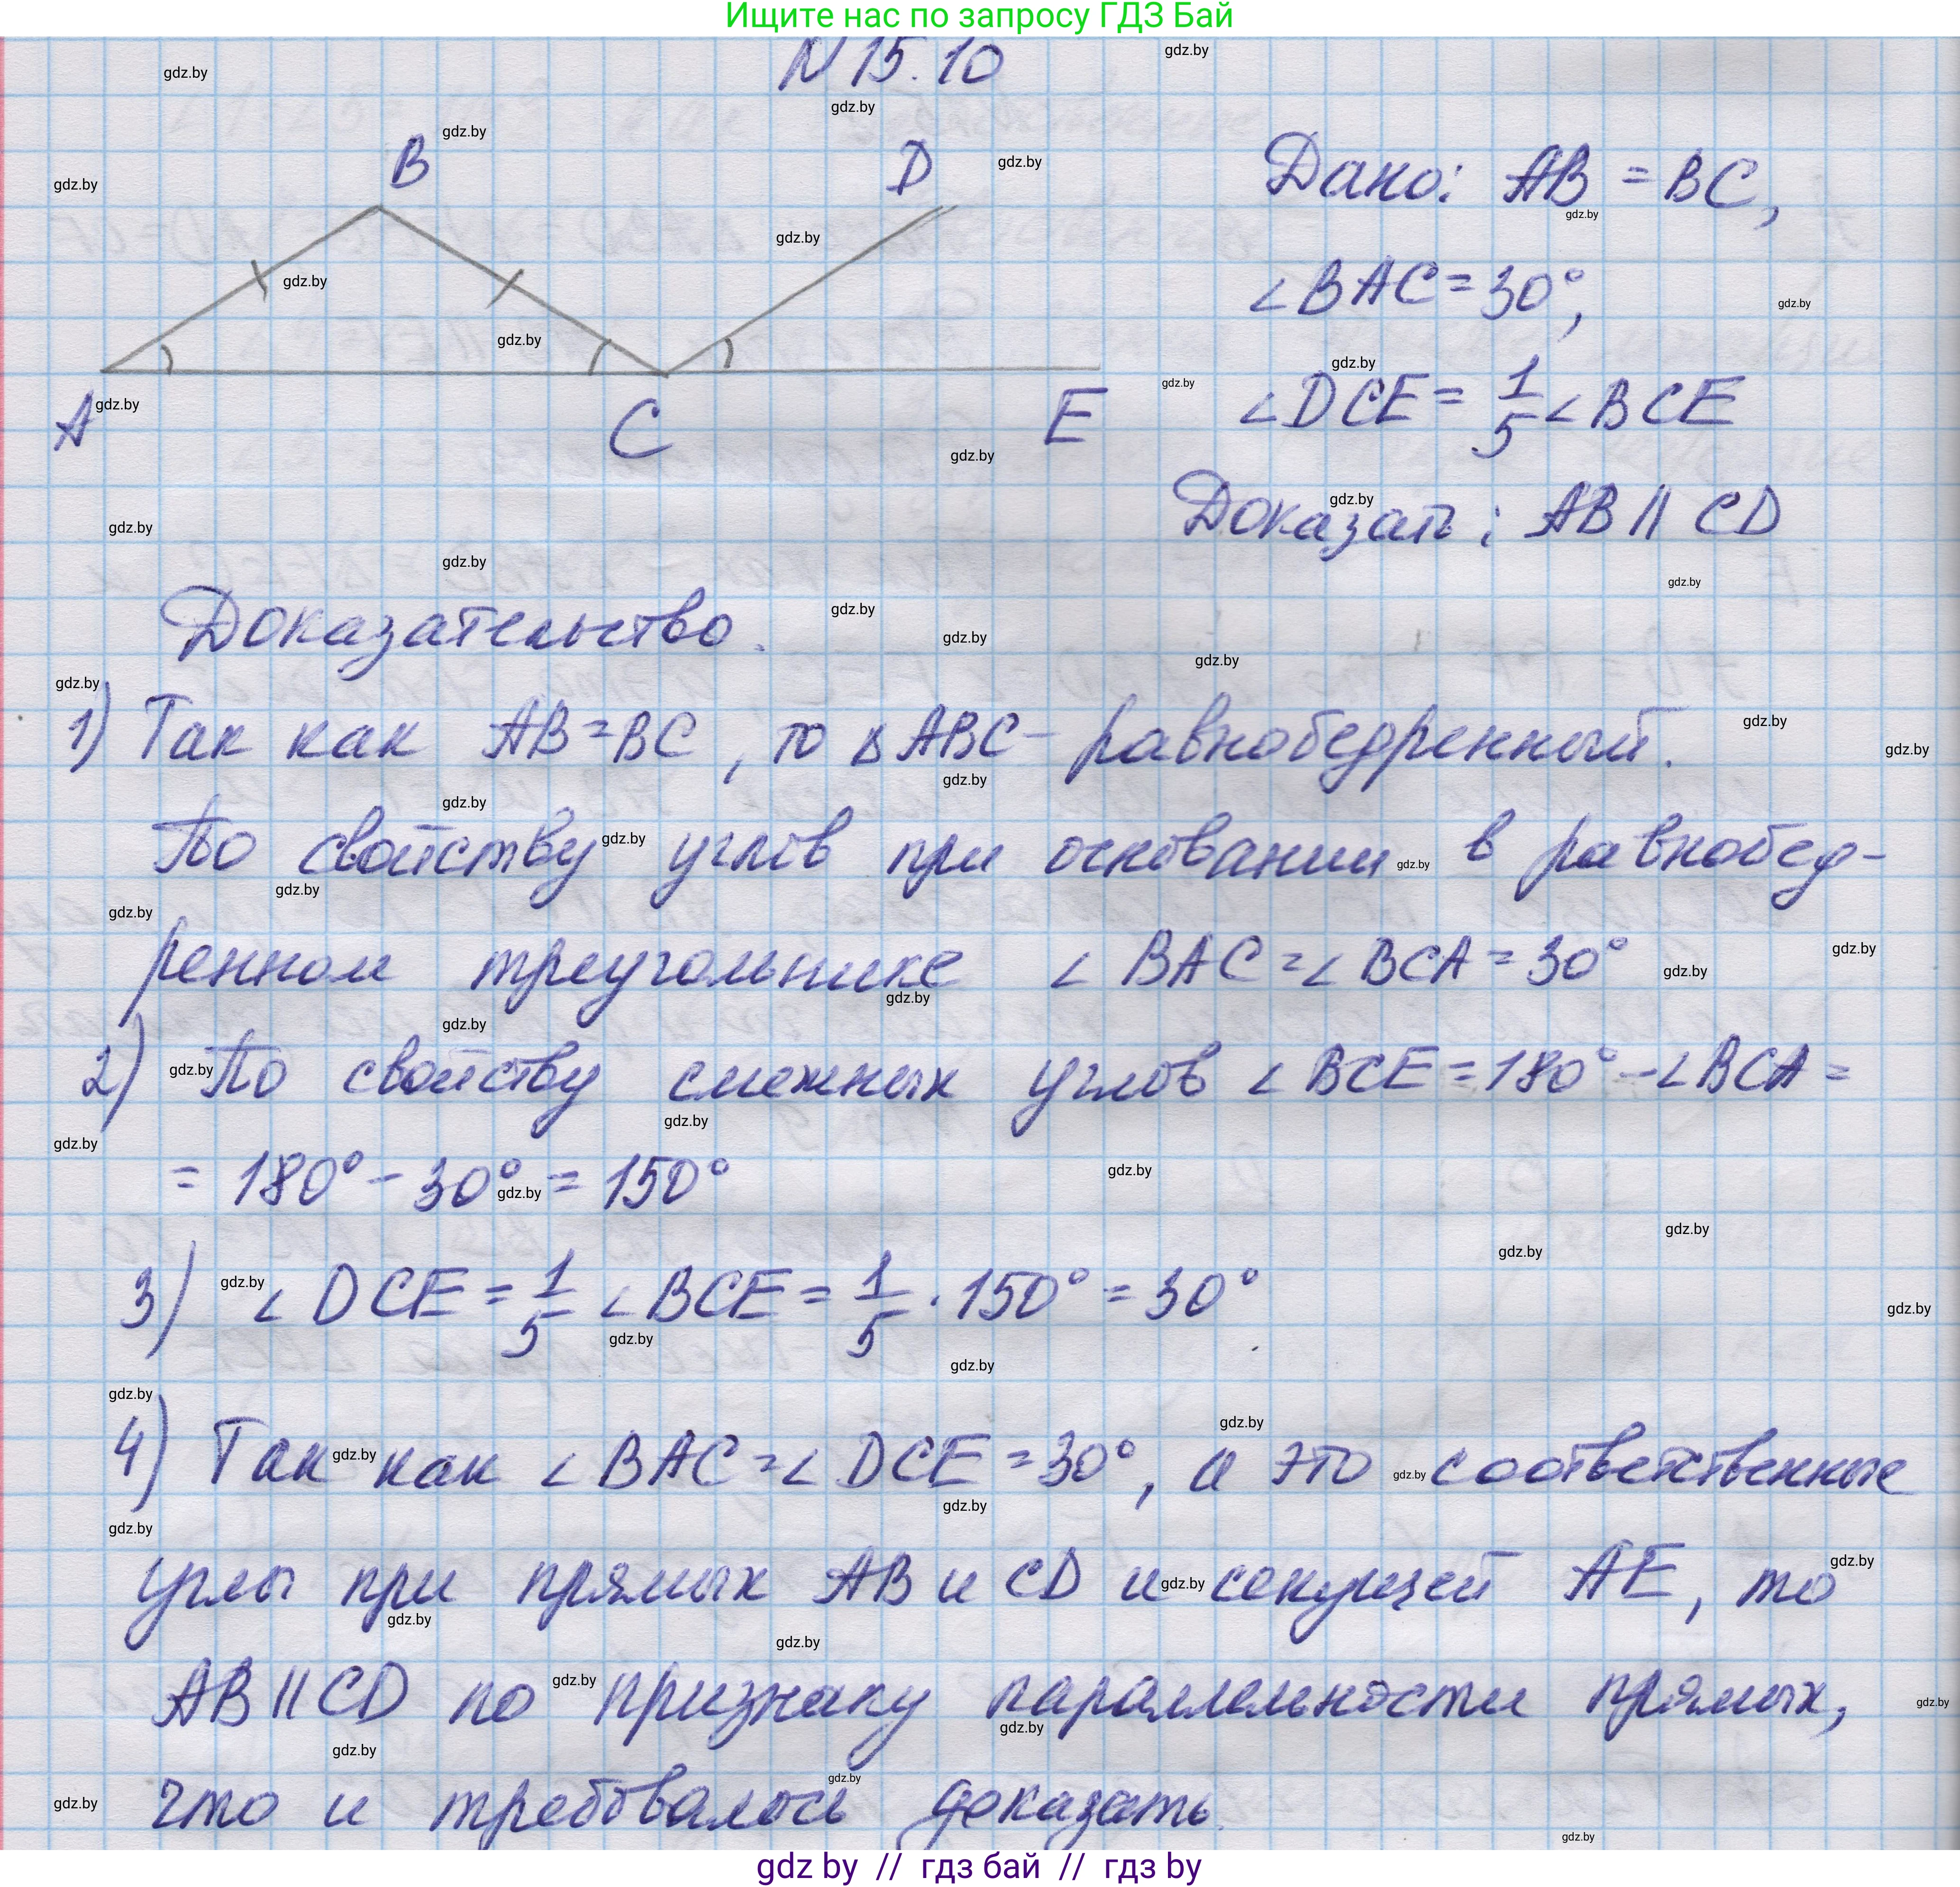 Ищите нас по запросу ГДЗ Бай
N 15.10
B
D
A
C
E
Дано: AB = BC,
∠BAC = 30°,
∠DCE = 1/5 ∠BCE
Доказать: AB || CD
Доказательство.
1) Так как AB = BC, то △ABC - равнобедренный.
По свойству углов при основании в равнобед-
ренном треугольнике ∠BAC = ∠BCA = 30°
2) По свойству смежных углов ∠BCE = 180° - ∠BCA =
= 180° - 30° = 150°
3) ∠DCE = 1/5 ∠BCE = 1/5 · 150° = 30°
4) Так как ∠BAC = ∠DCE = 30°, а это соответственные
углы при прямых AB и CD и секущей AE, то
AB || CD по признаку параллельности прямых,
что и требовалось доказать.
gdz by // гдз бай // гдз by